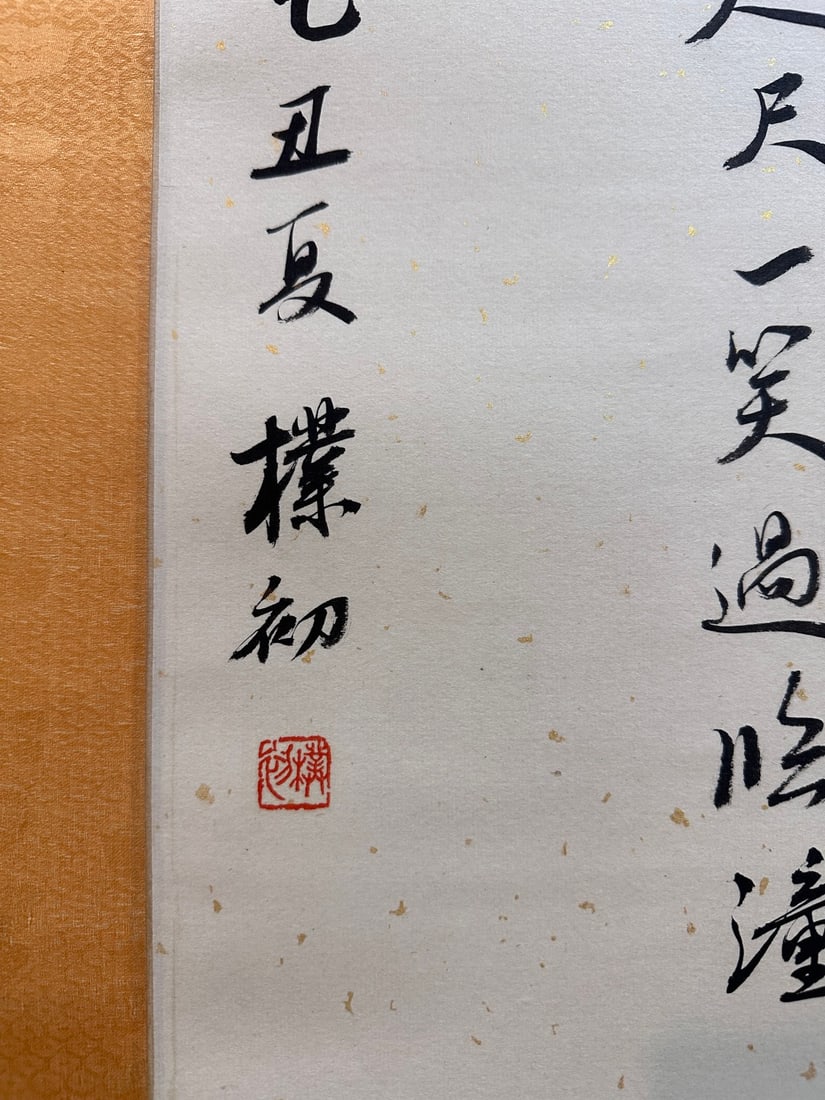 尺一笑過临潼
乙丑夏 樸初
樸初